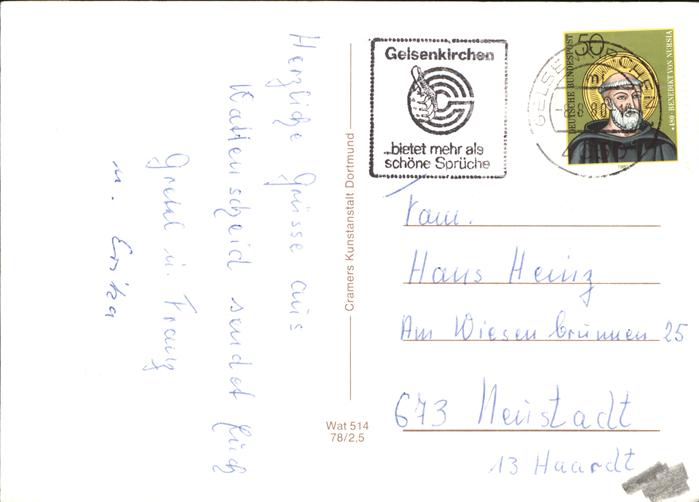 Herzliche Grüsse aus
Wattenscheid sendet Euch
Gretel u. Franz
u. Erika
Cramers Kunstanstalt Dortmund
Wat 514
78/2,5
Gelsenkirchen
...bietet mehr als
schöne Sprüche
GELSENKIRCHEN
-8.8.80
50
DEUTSCHE BUNDESPOST
*480 BENEDIKT VON NURSIA
1980
Fam.
Hans Heinz
Am Wiesenbrunnen 25
673 Neustadt
13 Haardt